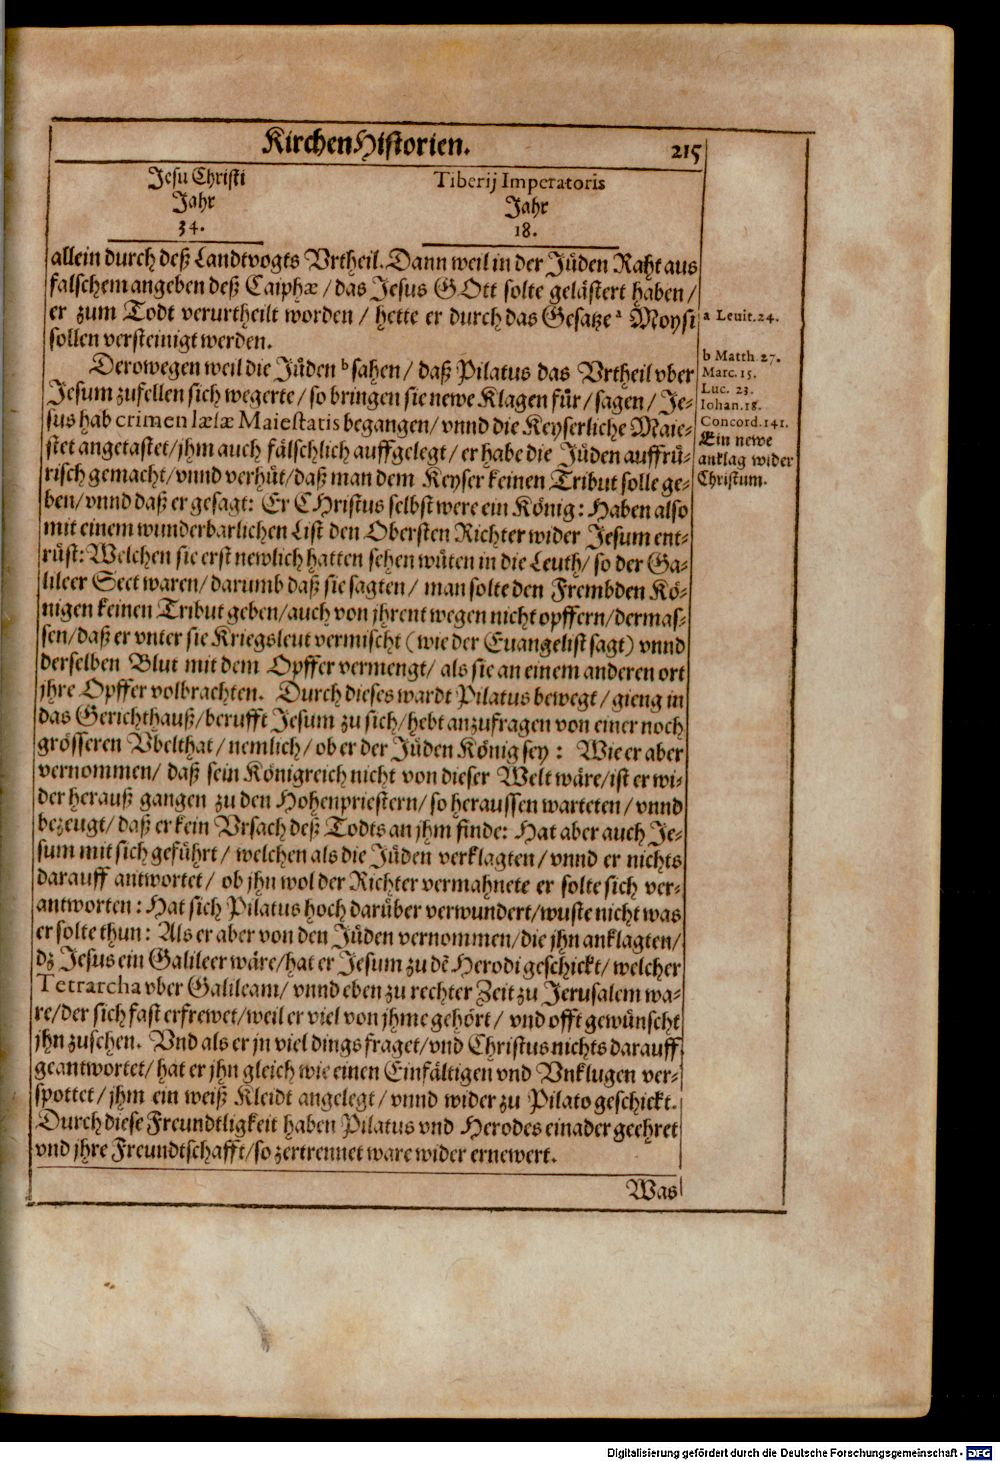 KirchenHistorien. 215
Jesu Christi
Jahr
34.
Tiberij Imperatoris
Jahr
18.
allein durch deß Landtvogts Vrtheil. Dann weil in der Jůden Raht aus
falschem angeben deß Caiphæ / das Jesus GOtt solte gelästert haben /
er zum Todt verurtheilt worden / hette er durch das Gesatze ᵃ Moysi
sollen versteinigt werden.
Derowegen weil die Jůden ᵇ sahen / daß Pilatus das Vrtheil vber
Jesum zufellen sich wegerte / so bringen sie newe Klagen fůr / sagen / Je-
sus hab crimen læsæ Maiestatis begangen / vnnd die Keyserliche Maie-
stet angetastet / jhm auch fälschlich auffgelegt / er habe die Jůden auffrů-
risch gemacht / vnnd verhůt / daß man dem Keyser keinen Tribut solle ge-
ben / vnnd daß er gesagt: Er CHristus selbst were ein König: Haben also
mit einem wunderbarlichen List den Obersten Richter wider Jesum ent-
růst: Welchen sie erst newlich hatten sehen wůten in die Leuth / so der Ga-
lileer Sect waren / darumb daß sie sagten / man solte den Frembden Kö-
nigen keinen Tribut geben / auch von jhrent wegen nicht opffern / dermas-
sen / daß er vnter sie Kriegsleut vermischt (wie der Euangelist sagt) vnnd
derselben Blut mit dem Opffer vermengt / als sie an einem anderen ort
jhre Opffer volbrachten. Durch dieses wardt Pilatus bewegt / gieng in
das Gerichthauß / berufft Jesum zu sich / hebt an zufragen von einer noch
grösseren Vbelthat / nemlich / ob er der Jůden König sey : Wie er aber
vernommen / daß sein Königreich nicht von dieser Welt wäre / ist er wi-
der herauß gangen zu den Hohenpriestern / so heraussen warteten / vnnd
bezeugt / daß er kein Vrsach deß Todts an jhm finde: Hat aber auch Je-
sum mit sich gefůhrt / welchen als die Jůden verklagten / vnnd er nichts
darauff antwortet / ob jhn wol der Richter vermahnete er solte sich ver-
antworten: Hat sich Pilatus hoch darůber verwundert / wuste nicht was
er solte thun: Als er aber von den Jůden vernommen / die jhn anklagten /
dz Jesus ein Galileer wäre / hat er Jesum zu dẽ Herodi geschickt / welcher
Tetrarcha vber Galileam / vnnd eben zu rechter Zeit zu Jerusalem wa-
re / der sich fast erfrewet / weil er viel von jhme gehört / vnd offt gewůnscht
jhn zusehen. Vnd als er jn viel dings fraget / vnd Christus nichts darauff
geantwortet / hat er jhn gleich wie einen Einfältigen vnd Vnklugen ver-
spottet / jhm ein weiß Kleidt angelegt / vnnd wider zu Pilato geschickt.
Durch diese Freundtligkeit haben Pilatus vnd Herodes einader geehret
vnd jhre Freundtschafft / so zertrennet ware wider ernewert.
Was
a Leuit. 24.
b Matth. 27.
Marc. 15.
Luc. 23.
Iohan. 18.
Concord. 141.
Ein newe
anklag wider
Christum.
Digitalisierung gefördert durch die Deutsche Forschungsgemeinschaft - DFG